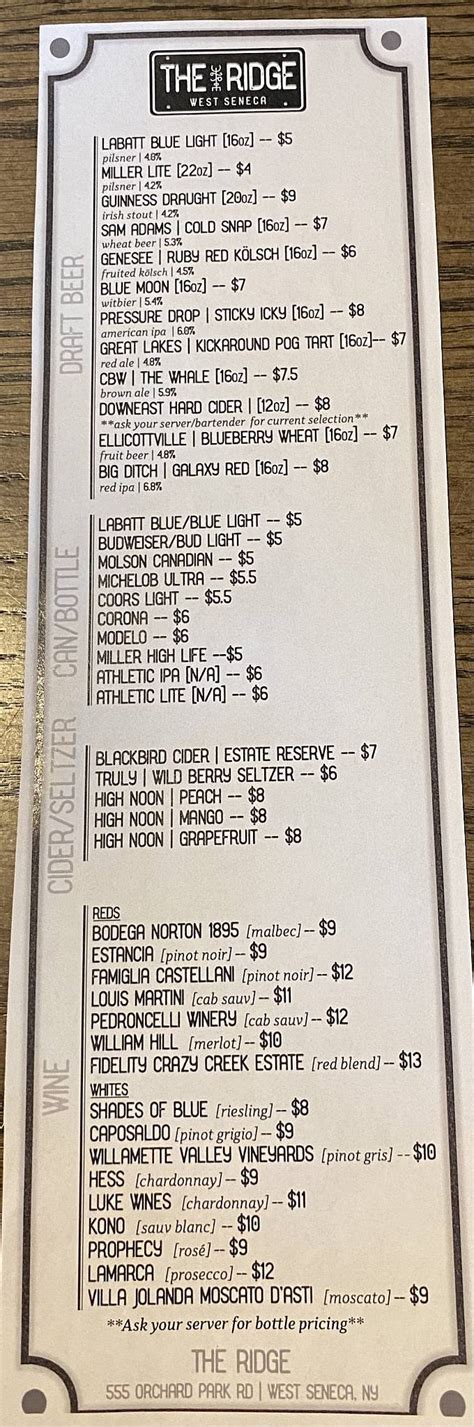 THE RIDGE
WEST SENECA
DRAFT BEER
LABATT BLUE LIGHT [16oz] -- $5
pilsner | 4.8%
MILLER LITE [22oz] -- $4
pilsner | 4.2%
GUINNESS DRAUGHT [20oz] -- $9
irish stout | 4.2%
SAM ADAMS | COLD SNAP [16oz] -- $7
wheat beer | 5.3%
GENESEE | RUBY RED KÖLSCH [16oz] -- $6
fruited kölsch | 4.5%
BLUE MOON [16oz] -- $7
witbier | 5.4%
PRESSURE DROP | STICKY ICKY [16oz] -- $8
american ipa | 6.8%
GREAT LAKES | KICKAROUND POG TART [16oz]-- $7
red ale | 4.8%
CBW | THE WHALE [16oz] -- $7.5
brown ale | 5.9%
DOWNEAST HARD CIDER | [12oz] -- $8
**ask your server/bartender for current selection**
ELLICOTTVILLE | BLUEBERRY WHEAT [16oz] -- $7
fruit beer | 4.8%
BIG DITCH | GALAXY RED [16oz] -- $8
red ipa | 6.8%
CAN/BOTTLE
LABATT BLUE/BLUE LIGHT -- $5
BUDWEISER/BUD LIGHT -- $5
MOLSON CANADIAN -- $5
MICHELOB ULTRA -- $5.5
COORS LIGHT -- $5.5
CORONA -- $6
MODELO -- $6
MILLER HIGH LIFE --$5
ATHLETIC IPA [N/A] -- $6
ATHLETIC LITE [N/A] -- $6
CIDER/SELTZER
BLACKBIRD CIDER | ESTATE RESERVE -- $7
TRULY | WILD BERRY SELTZER -- $6
HIGH NOON | PEACH -- $8
HIGH NOON | MANGO -- $8
HIGH NOON | GRAPEFRUIT -- $8
WINE
REDS
BODEGA NORTON 1895 [malbec] -- $9
ESTANCIA [pinot noir] -- $9
FAMIGLIA CASTELLANI [pinot noir] -- $12
LOUIS MARTINI [cab sauv] -- $11
PEDRONCELLI WINERY [cab sauv] -- $12
WILLIAM HILL [merlot] -- $10
FIDELITY CRAZY CREEK ESTATE [red blend] -- $13
WHITES
SHADES OF BLUE [riesling] -- $8
CAPOSALDO [pinot grigio] -- $9
WILLAMETTE VALLEY VINEYARDS [pinot gris] -- $10
HESS [chardonnay] -- $9
LUKE WINES [chardonnay] -- $11
KONO [sauv blanc] -- $10
PROPHECY [rosé] -- $9
LAMARCA [prosecco] -- $12
VILLA JOLANDA MOSCATO D'ASTI [moscato] -- $9
**Ask your server for bottle pricing**
THE RIDGE
555 ORCHARD PARK RD | WEST SENECA, NY